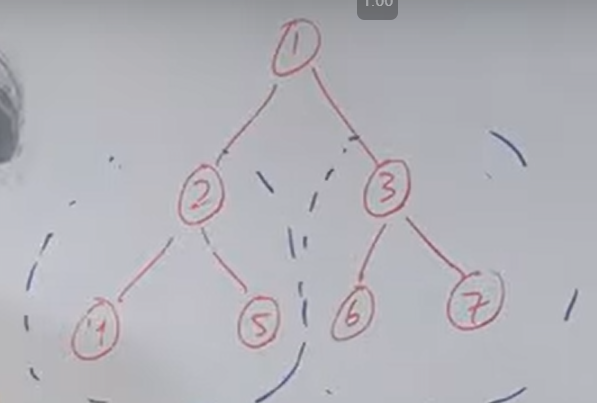 1:00
1
2 3
4 5 6 7